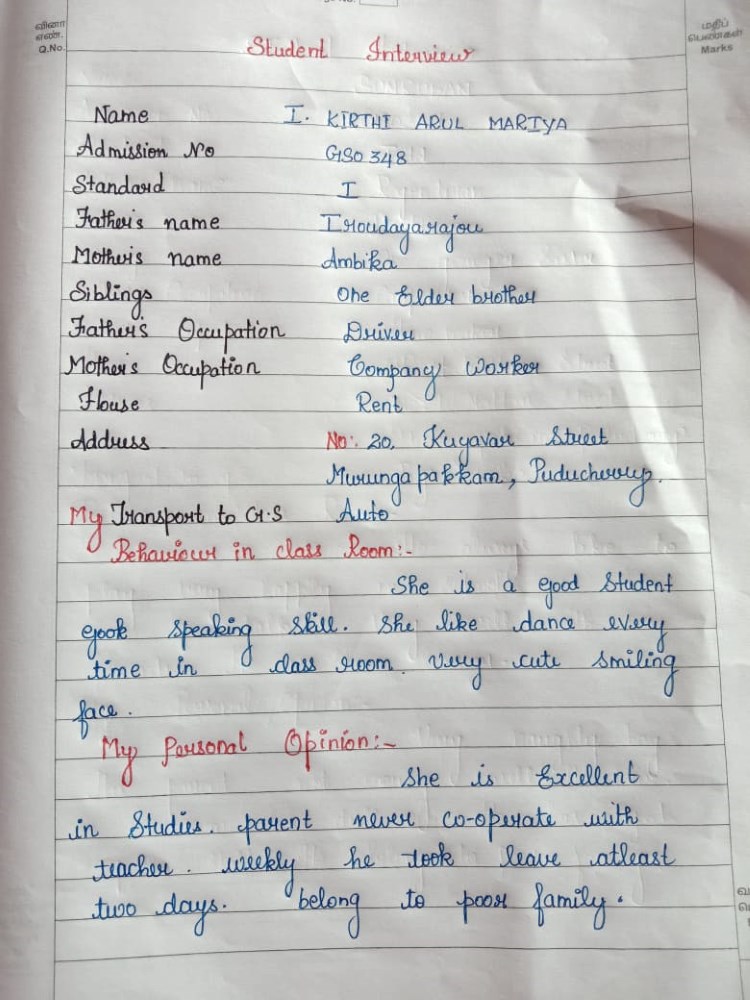 வினா
எண்.
Q.No.
மதிப்
பெண்கள்
Marks
Student Interview
Name I. KIRTHI ARUL MARIYA
Admission No GSO 348
Standard I
Father's name Iroudayarajou
Mother's name Ambika
Siblings One Elder brother
Father's Occupation Driver
Mother's Occupation Company Worker
House Rent
Address No: 20, Kuyavar Street
Murungapakkam, Puducherry.
My Transport to G.S Auto
Behaviour in class Room:-
She is a good Student
gook speaking skill. She like dance every
time in class room. very cute smiling
face.
My Personal Opinion:-
She is Excellent
in Studies. parent never co-operate with
teacher. weekly he took leave atleast
two days. belong to poor family.